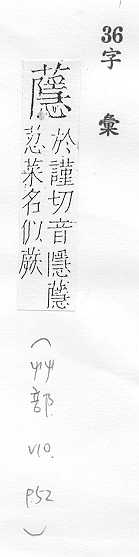 36
字彙
蘟
於謹切音隱蘟
荵菜名似蕨
(艸部 V10. P52)